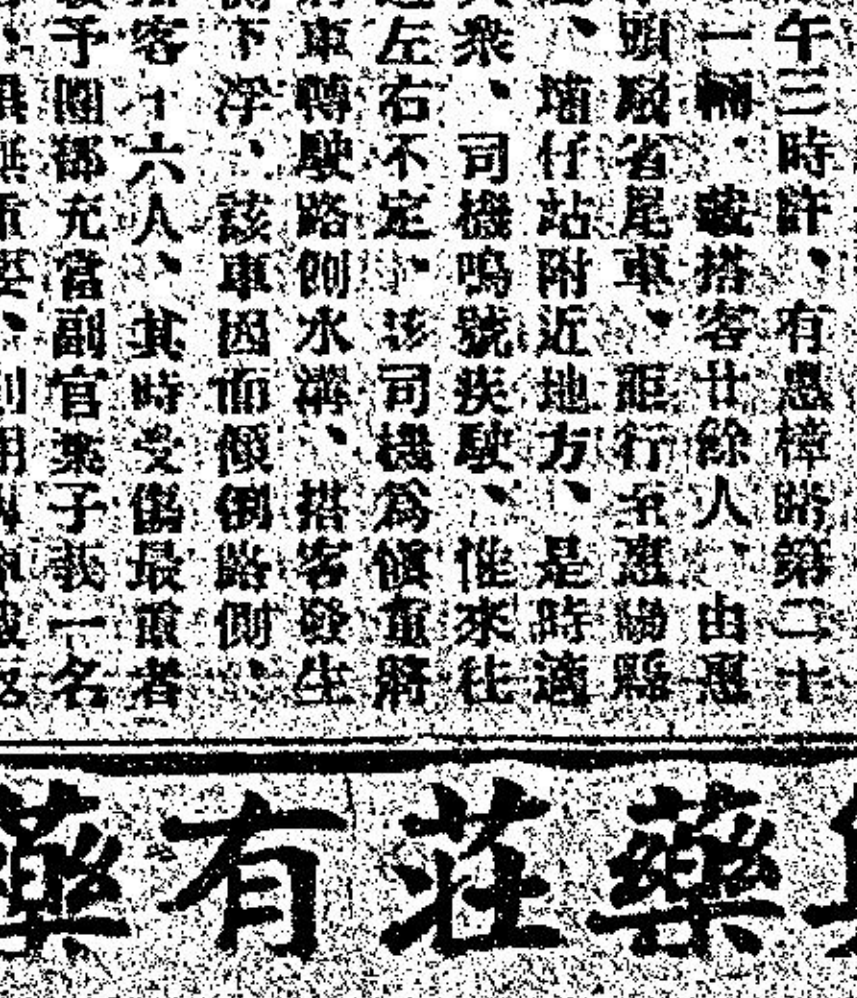 午三時許、有惠樟路第二十
一輛、載搭客廿餘人、由惠
頭嚴省尾車、距行至惠陽縣
、塘仔站附近地方、是時適
衆、司機鳴號疾駛、惟來往
左右不定、該司機爲愼重將
車轉駛路側水溝、搭客發生
下浮、該車因而傾倒路側、
客十六人、其時受傷最重者
予團部充當副官葉子我一名
藥莊有藥